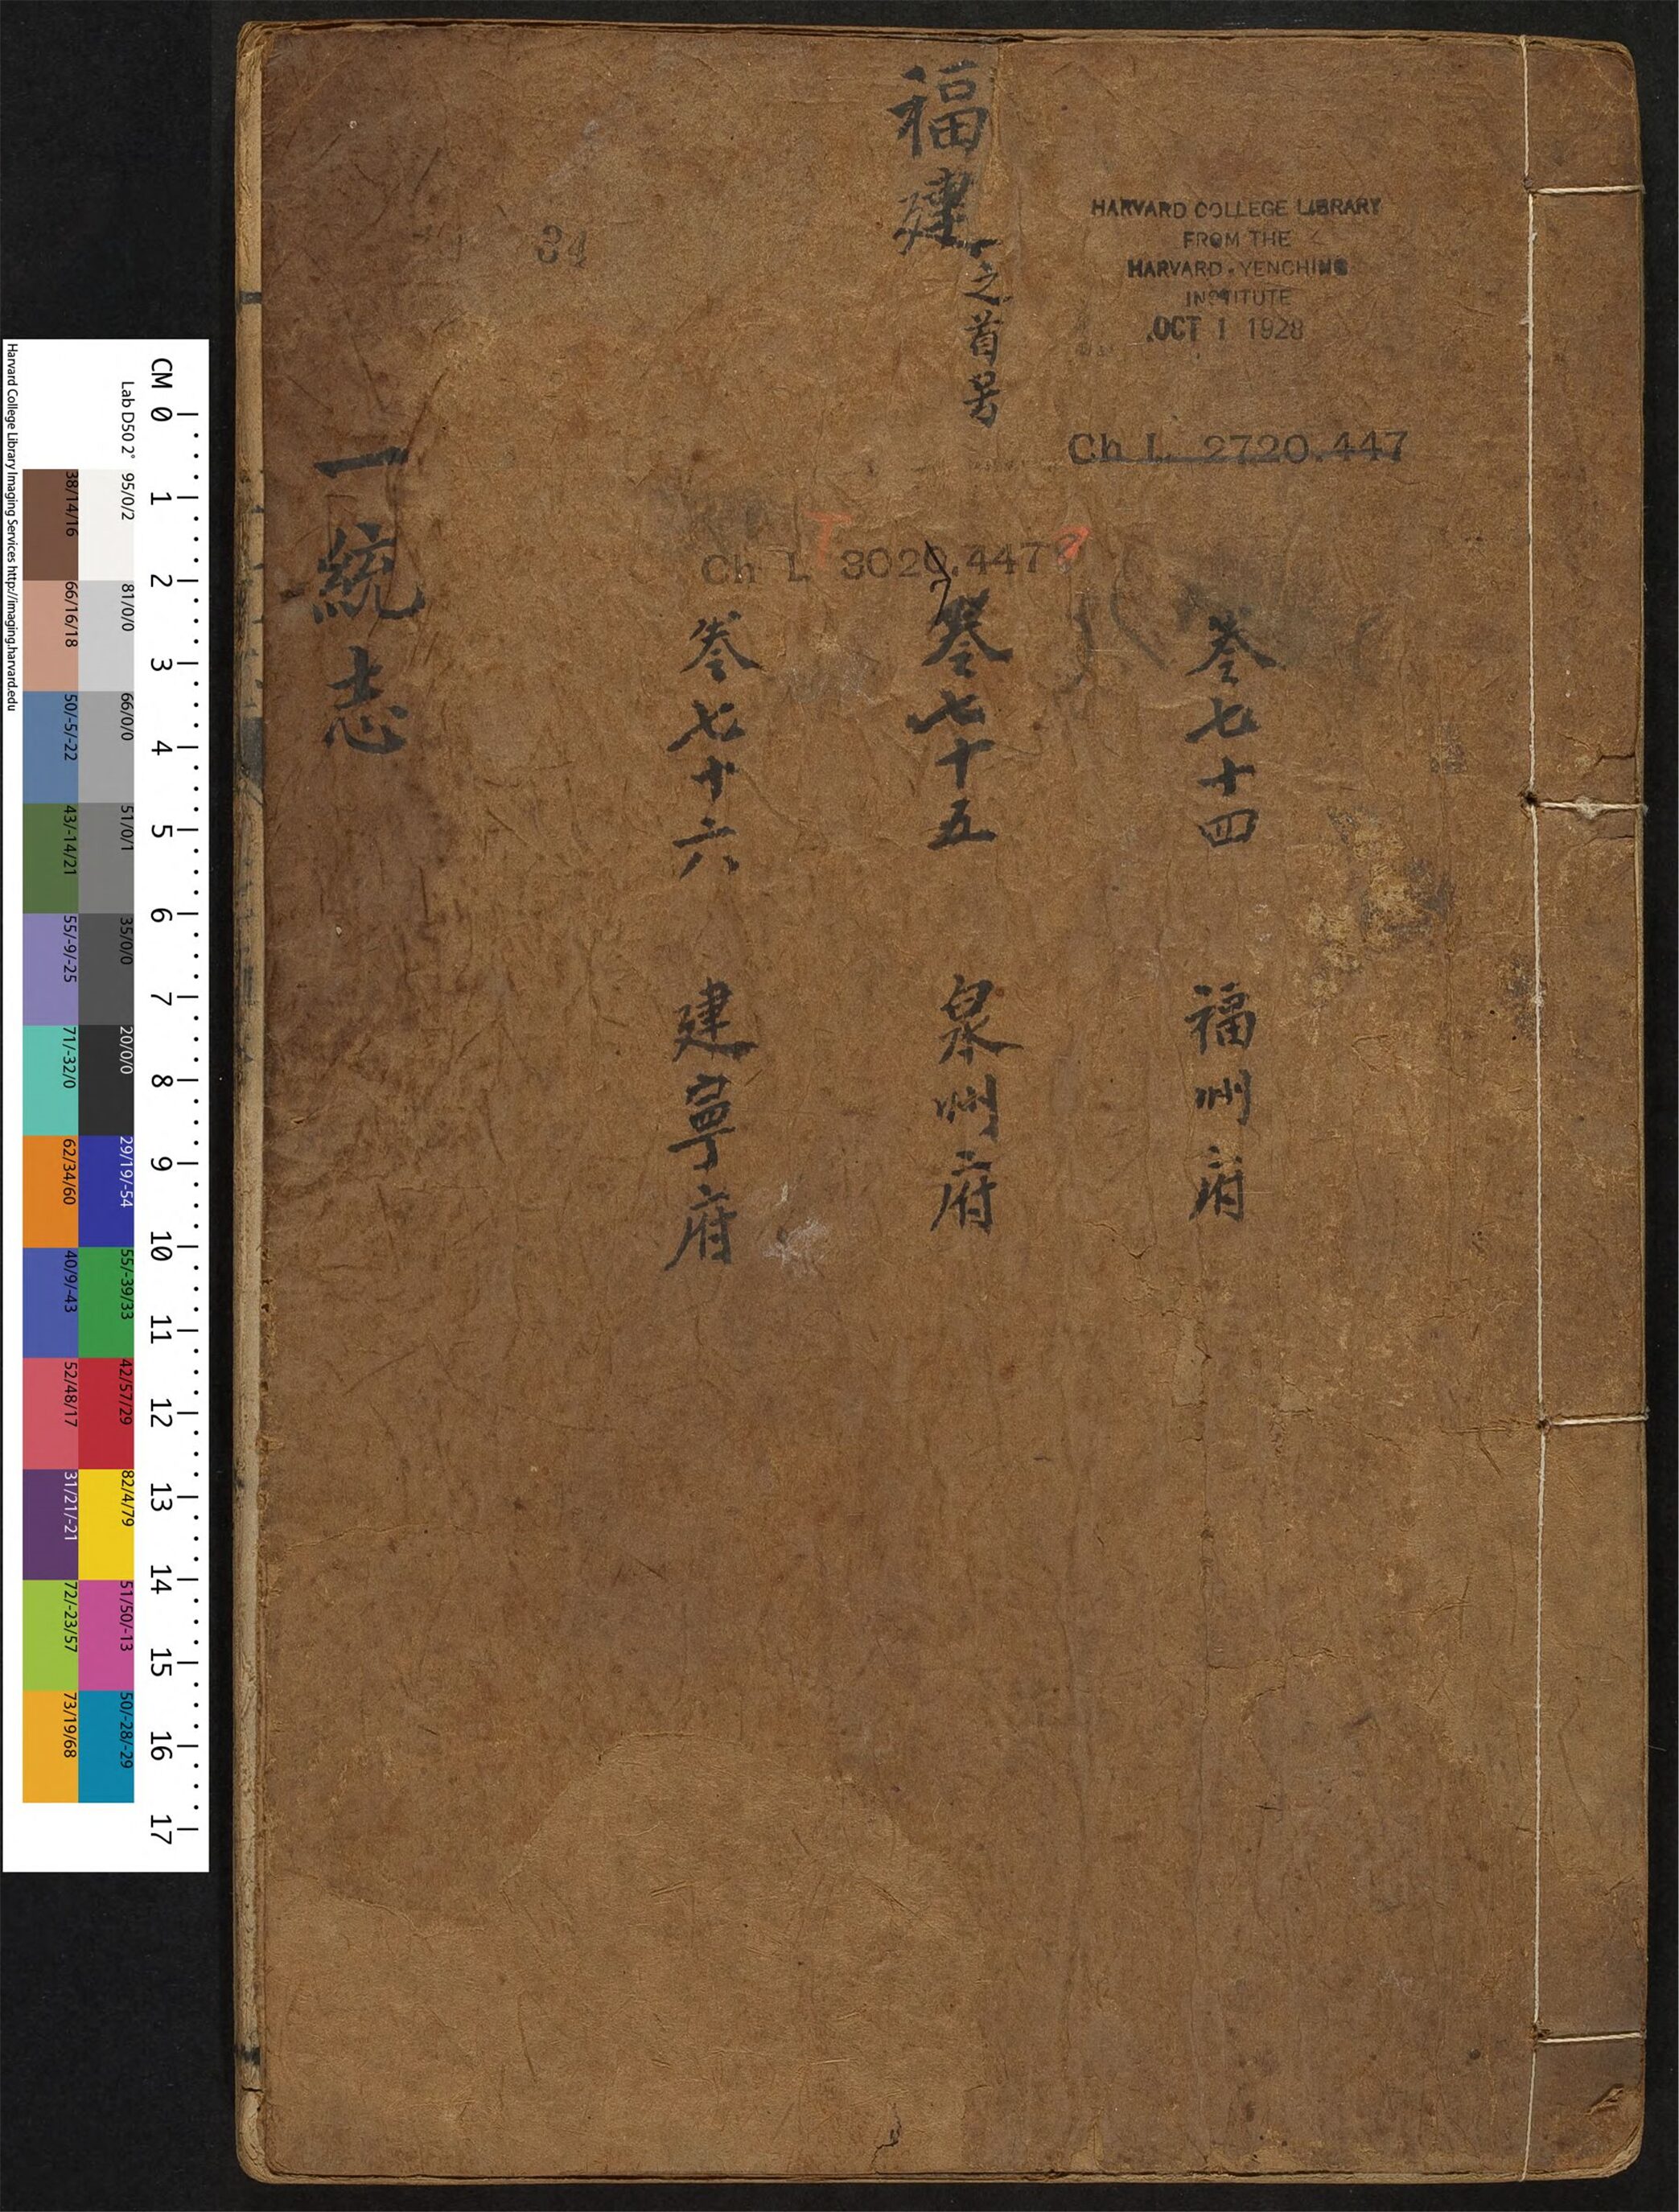 福建之首号
HARVARD COLLEGE LIBRARY
FROM THE
HARVARD-YENCHING
INSTITUTE
OCT 1 1928
34
Ch L 2720.447
Ch L 3020.447
T
7
卷七十四 福州府
卷七十五 泉州府
卷七十六 建寧府
一統志
CM 0 1 2 3 4 5 6 7 8 9 10 11 12 13 14 15 16 17
Lab D50 2° 95/0/2 81/0/0 66/0/0 51/0/1 35/0/0 20/0/0 29/19/-54 55/-39/33 42/57/29 82/4/79 51/50/-13 50/-28/-29
38/14/16 66/16/18 50/-5/-22 43/-14/21 55/-9/-25 71/-32/0 62/34/60 40/9/-43 52/48/17 31/21/-21 72/-23/57 73/19/68
Harvard College Library Imaging Services http://imaging.harvard.edu